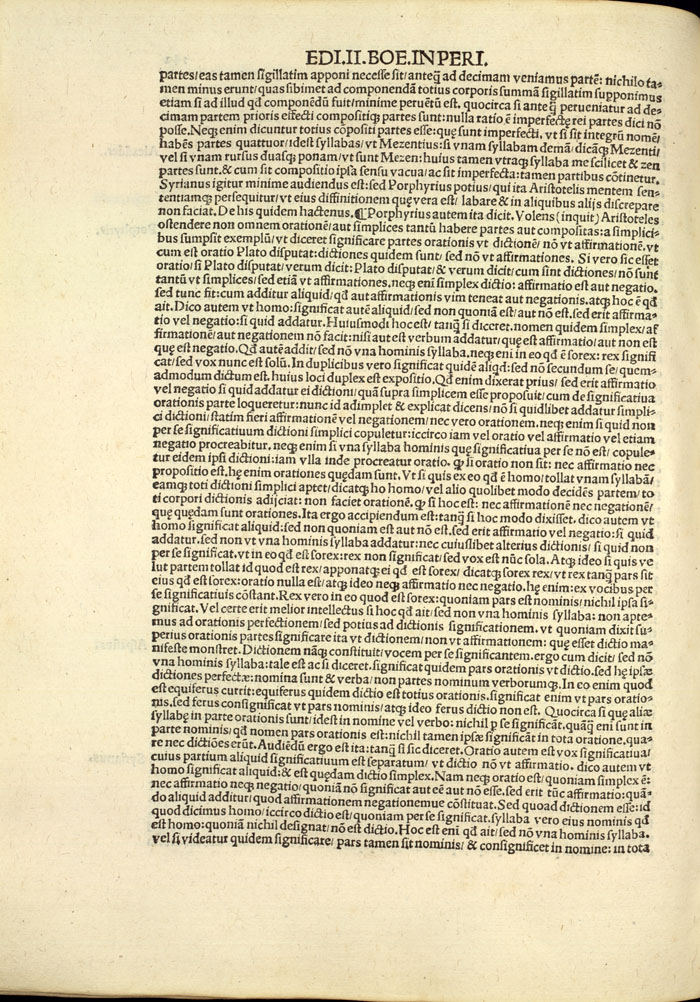 EDI.II.BOE.IN PERI.
partes/eas tamen sigillatim apponi necesse sit/anteq̃ ad decimam veniamus partē: nichilo ta⸗
men minus erunt/quas sibimet ad componendā totius corporis summā sigillatim supponimus
etiam si ad illud qđ componēdū fuit/minime peruētū est. quocirca si anteq̃ perueniatur ad de⸗
cimam partem prioris effecti compositiq; partes sunt: nulla ratio ē imperfectę rei partes dici nō
posse. Neq; enim dicuntur totius cōpositi partes esse: quę sunt imperfecti, vt si sit integrū nomē/
habēs partes quattuor/idest syllabas/vt Mezentius: si vnam syllabam demā/dicāq; Mezenti/
vel si vnam rursus duasq; ponam/vt sunt Mezen: huius tamen vtraq; syllaba me scilicet & zen
partes sunt. & cum sit compositio ipsa sensu vacua/ac sit imperfecta: tamen partibus cōtinetur.
Syrianus igitur minime audiendus est: sed Porphyrius potius/qui ita Aristotelis mentem sen⸗
tentiamq; persequitur/vt eius diffinitionem quę vera est/ labare & in aliquibus alijs discrepare
non faciat. De his quidem hactenus. ¶ Porphyrius autem ita dicit. Volens (inquit) Aristoteles
ostendere non omnem orationē/aut simplices tantū habere partes aut compositas: a simplici⸗
bus sumpsit exemplū/vt diceret significare partes orationis vt dictionē/ nō vt affirmationē. vt
cum est oratio Plato disputat: dictiones quidem sunt/ sed nō vt affirmationes. Si vero sic esset
oratio/si Plato disputat/verum dicit: Plato disputat/& verum dicit/cum sint dictiones/nō sunt
tantū vt simplices/sed etiā vt affirmationes. neq; eni simplex dictio: affirmatio est aut negatio.
sed tunc fit: cum additur aliquid/qđ aut affirmationis vim teneat aut negationis. atq; hoc ē qđ
ait. Dico autem vt homo: significat autē aliquid/sed non quoniā est/aut nō est. sed erit affirma⸗
tio vel negatio: si quid addatur. Huiusmodi hoc est/ tanq̃ si diceret. nomen quidem simplex/af
firmationē/aut negationem nō facit: nisi aut est verbum addatur/quę est affirmatio/aut non est
quę est negatio. Qđ autē addit/sed nō vna hominis syllaba. neq; eni in eo qđ ē sorex: rex signifi
cat/sed vox nunc est solū. In duplicibus vero significat quidē aliqd: sed nō secundum se/quem⸗
admodum dictum est. huius loci duplex est expositio. Qđ enim dixerat prius/ sed erit affirmatio
vel negatio si quid addatur ei dictioni/quā supra simplicem esse proposuit/cum de significatiua
orationis parte loqueretur: nunc id adimplet & explicat dicens/nō si quidlibet addatur simpli⸗
ci dictioni/statim fieri affirmationē vel negationem/nec vero orationem. neq; enim si quid non
per se significatiuum dictioni simplici copuletur: iccirco iam vel oratio vel affirmatio vel etiam
negatio procreabitur. neq; enim si vna syllaba hominis quę significatiua per se nō est/ copule⸗
tur eidem ipsi dictioni: iam vlla inde procreatur oratio. ꝙ si oratio non sit: nec affirmatio nec
propositio est. hę enim orationes quędam sunt. Vt si quis ex eo qđ ē homo/tollat vnam syllabā/
eamq; toti dictioni simplici aptet/dicatq; ho homo/vel alio quolibet modo decidēs partem/to
ti corpori dictionis adijciat: non faciet orationē. ꝙ si hoc est: nec affirmationē nec negationē/
quę quędam sunt orationes. Ita ergo accipiendum est: tanq̃ si hoc modo dixisset. dico autem vt
homo significat aliquid: sed non quoniam est aut nō est. sed erit affirmatio vel negatio: si quid
addatur. sed non vt vna hominis syllaba addatur: nec cuiuslibet alterius dictionis/ si quid non
per se significat. vt in eo qđ est sorex: rex non significat/sed vox est nūc sola. Atq; ideo si quis ve
lut partem tollat id quod est rex/apponatq; ei qđ est sorex/ dicatq; sorex rex/ vt rex tanq̃ pars sit
eius qđ est sorex: oratio nulla est/atq; ideo neq; affirmatio nec negatio. hę enim: ex vocibus per
se significatiuis cōstant. Rex vero in eo quod est sorex: quoniam pars est nominis/ nichil ipsa si⸗
gnificat. Vel certe erit melior intellectus si hoc qđ ait/sed non vna hominis syllaba: non apte⸗
mus ad orationis perfectionem/sed potius ad dictionis significationem. vt quoniam dixit su⸗
perius orationis partes significare ita vt dictionem/non vt affirmationem: quę esset dictio ma⸗
nifeste monstret. Dictionem nāq; constituit/vocem per se significantem. ergo cum dicit/ sed nō
vna hominis syllaba: tale est ac si diceret. significat quidem pars orationis vt dictio. sed hę ipsæ
dictiones perfectæ: nomina sunt & verba/non partes nominum verborumq;. In eo enim quod
est equiferus currit: equiferus quidem dictio est totius orationis. significat enim vt pars oratio⸗
nis. sed ferus consignificat vt pars nominis/atq; ideo ferus dictio non est. Quocirca si que aliæ
syllabę in parte orationis sunt/idest in nomine vel verbo: nichil p se significāt. quāq̃ eni sunt in
parte nominis/qđ nomen pars orationis est: nichil tamen ipsæ significāt in tota oratione. qua⸗
re nec dictiōes erūt. Audiēdū ergo est ita: tanq̃ si sic diceret. Oratio autem est vox significatiua/
cuius partium aliquid significatiuum est separatum/ vt dictio nō vt affirmatio. dico autem vt
homo significat aliquid: & est quędam dictio simplex. Nam neq; oratio est/quoniam simplex ē:
nec affirmatio neq; negatio/quoniā nō significat aut eē aut nō esse. sed erit tūc affirmatio: quā⸗
do aliquid additur/quod affirmationem negationemue cōstituat. Sed quoad dictionem esse: id
quod dicimus homo/iccirco dictio est/quoniam per se significat. syllaba vero eius nominis qđ
est homo: quoniā nichil designat/nō est dictio. Hoc est eni qđ ait/sed nō vna hominis syllaba.
vel si videatur quidem significare/ pars tamen sit nominis/ & consignificet in nomine: in tota